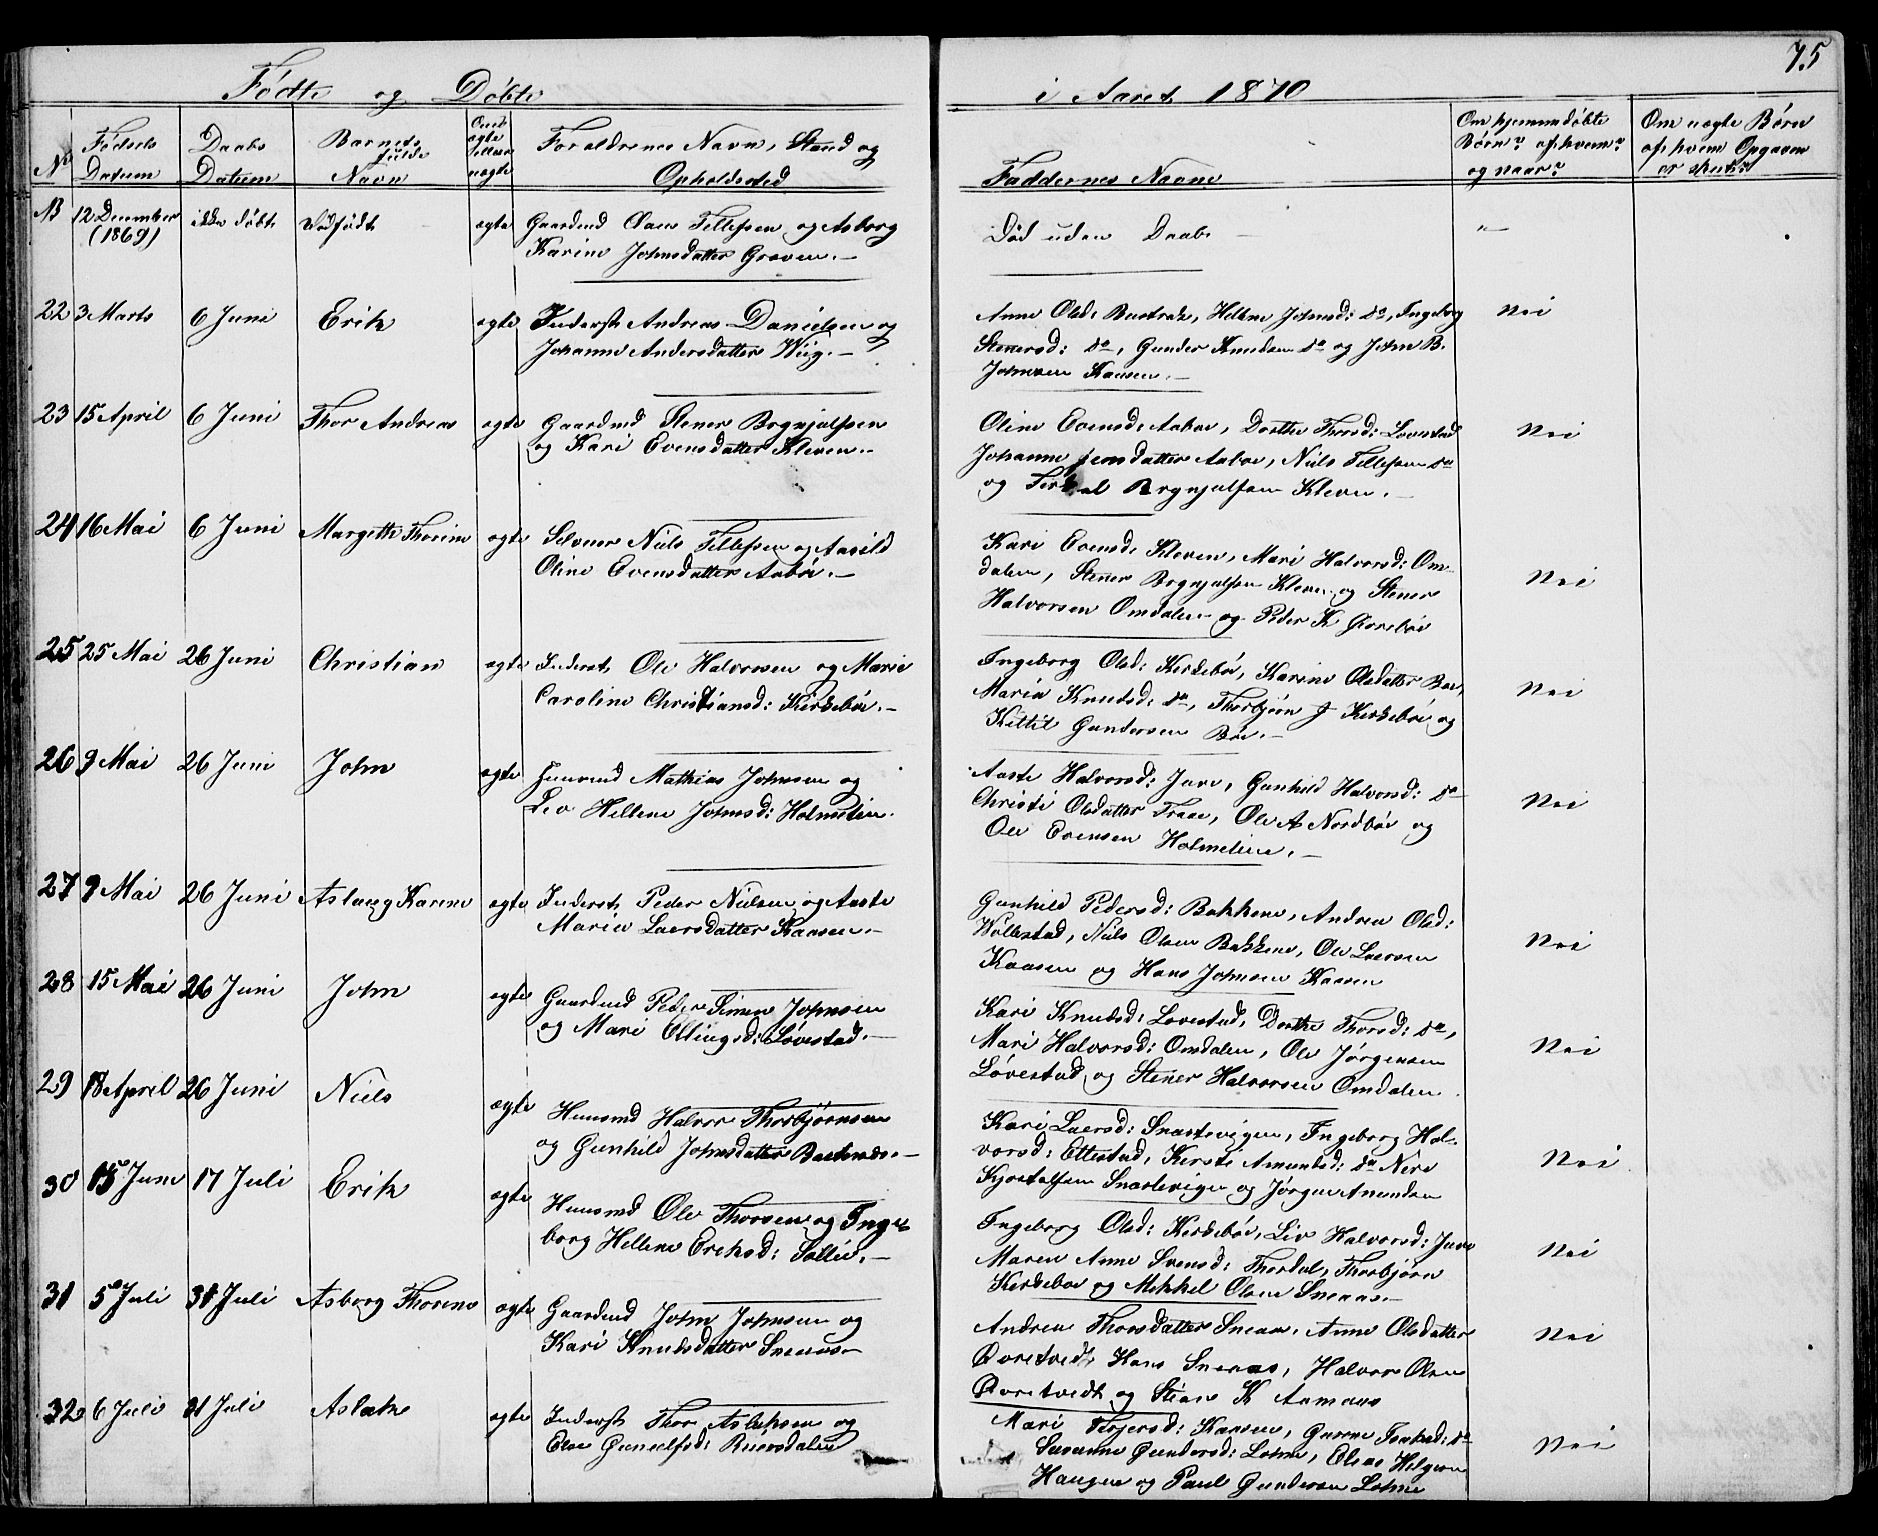 75
Fødte og Døbte i Aaret 1870
No
Fødsels Datum
Daabs Datum
Barnets fulde Navn
ægte uægte
Forældrenes Navn, Stand og Opholdssted
Faddernes Navne
Om hjemmedøbte Børn? af hvem? og naar?
Om uægte Børn af hvem Opgaven er skeet?
B 12 December (1869) ikke døbt dødfødt ægte Gaardmd Claus Tellefsen og Asborg
Karine Johnsdatter Graven.—
Død uden Daab.
22 3 Marts 6 Juni Erik ægte Inderst Andreas Danielsen og
Johanne Andersdatter Wiig.—
Anne Olsd: Hellene Johnsd: do, Ingeborg
Stenersd: do, Gunder Knudsen do og John B.
Johnsen Kaasen.—
Nei
23 15 April 6 Juni Thor Andreas ægte Gaardmd Stener Brynjulfsen
og Kari Evensdatter Kleven.—
Oline Evensd: Aabøe, Dorthe Thorsd: Lovestad
Johanne Jensdatter Aabøe, Niels Tellefsen do
og Brynjulfsen Kleven.—
Nei
24 16 Mai 6 Juni Margethe Thorine ægte Selveier Niels Tellefsen og Aasild
Oline Evensdatter Aabøe.—
Kari Evensd: Kleven, Mari Halvorsd: Om-
dalen, Stener Brynjulfsen Kleven og Stener
Halvorsen Omdalen og Peder K
Nei
25 25 Mai 26 Juni Christian ægte Inderst Ole Halvorsen og Marie
Caroline Christiansd: Kirkebøe.—
Ingeborg Olsd: Kirkebøe, Karine Olsdatter Bøe,
Maria Knudsd: do, Thorbjørn J Kirkebøe og
Kittil Gundersen Bøe.—
Nei
26 9 Mai 26 Juni John ægte Huusmd Mathias Johnsen og
Liv Hellene Johnsd: Holmelien.
Aaste Halvorsd: Juve, Gunhild Halvorsd: do
Christi Olsdatter Traae, Ole A Nordbøe og
Ole Evensen Holmelien.—
Nei
27 9 Mai 26 Juni Aslaug Karine ægte Inderst Peder Nielsen og Aaste
Maria Laersdatter Kaasen.—
Gunhild Pedersd: Bakkene, Andrea Olsd:
Wollestad, Niels Olsen Bakkene, Ole Laersen
Kaasen og Hans Johnsen Kaasen
Nei
28 15 Mai 26 Juni John ægte Gaardmd Peder Simen Johnsen
og Mari Ellingsd: Løvestad.—
Kari Knudsd: Lovestad, Dorthe Thorsd: do,
Mari Halvorsd: Omdalen, Ole Jørgensen
Løvestad og Stener Halvorsen Omdalen
Nei
29 18 April 26 Juni Niels ægte Huusmd Halvor Thorbjørnsen
og Gunhild Johnsdatter
Kari Laersd: Snartevigen, Ingeborg Hal-
vorsd: Ettestad, Kirsti Amundsd: do Neri
Kjostolfsen Snartevigen og Jørgen Amundsen
Nei
30 15 Juni 17 Juli Erik ægte Huusmd Ole Thorsen og Inge-
borg Hellene Eriksd: Sollie.—
Ingeborg Olsd: Kirkebøe, Liv Halvorsd: Juve
Maren Anne Svensd: Thordal, Thorbjørn
Kirkebøe og Mikkel Olsen Sneaas.—
Nei
31 5 Juli 31 Juli Asborg Thorine ægte Gaardmd John Johnsen og
Kari Knudsdatter Sneaas.—
Andrea Thorsdatter Sneaas, Anne Olsdatter
Qvretvedt Hans Sneaas, Halvor Olsen
og K Aamaas
Nei
32 6 Juli 31 Juli Aslak ægte Inderst Thor Aslaksen og
Else Gunulfsd: Ruiersdalen
Mari Terjersd: Kaasen, Gurine Isaksd: do
Susanne Gundersd: Lohne, Elias Helgesen
Haugen og Paul Gundersen Lohne
Nei